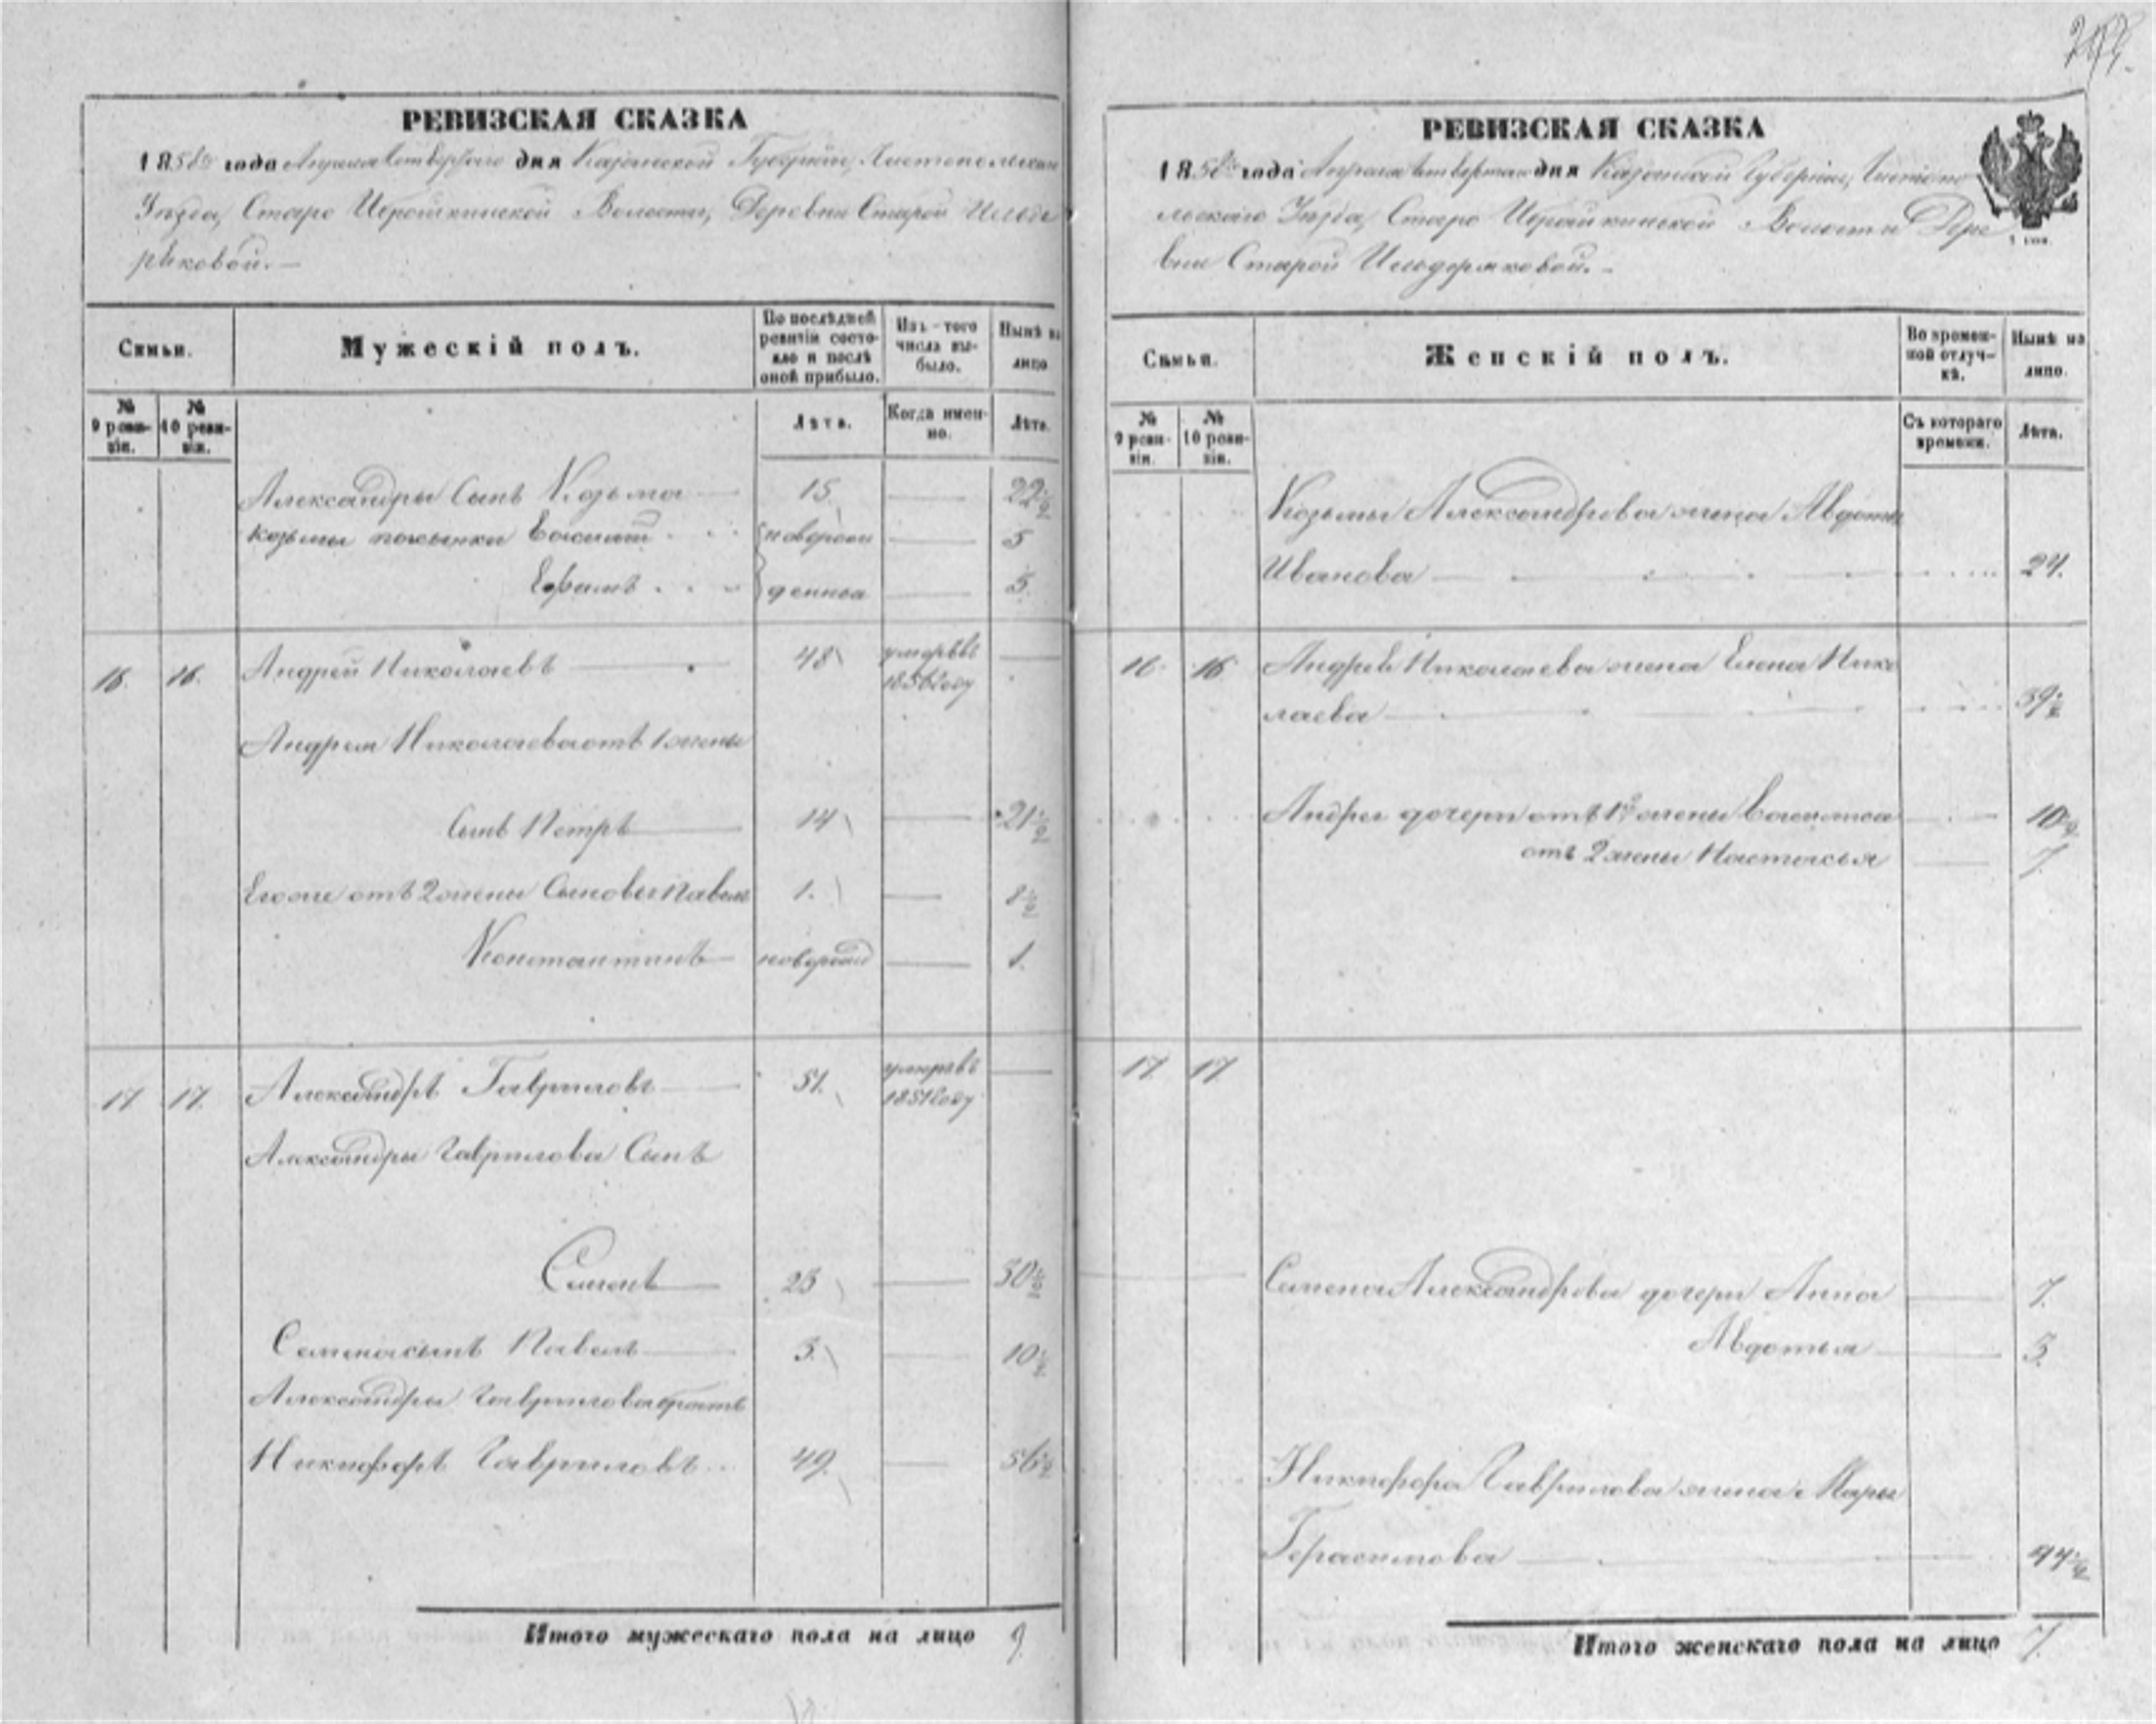 РЕВИЗСКАЯ СКАЗКА
1858го года Апреля четвертаго дня Казанской Губернiи, Чистопольскаго
Уѣзда, Старо Ибрайкинской Волости, Деревни Старой Ильде
ряковой. —
Семьи.
Мужескiй полъ.
По послѣдней ревизiи состояло и послѣ оной прибыло.
Изъ-того числа выбыло.
Нынѣ на лицо
№ 9 ревизiи.
№ 10 ревизiи.
Лѣта.
Когда именно.
Лѣта.
Александры Сынъ Козьма — 15 — 22½
Козьмы
новорож 5
Ефимъ денныя — 5
16. 16. Андрей Николаевъ — 48 умеръ въ —
1856 году
Андрея Николаева отъ 1 жены
Сынъ Петръ — 14 — 21½
Его же отъ 2 жены Сыновья Павелъ 1. — 8½
Константинъ — новорожд — 1.
17. 17. Александръ Гавриловъ — 51. умеръ въ —
1851 году
Александры Гаврилова Сынъ
Семенъ — 23 — 30½
Семена сынъ Павелъ — 3. — 10½
Александры Гаврилова братъ
Никифоръ Гавриловъ 49. — 56½
Итого мужескаго пола на лицо 9.
РЕВИЗСКАЯ СКАЗКА
1858го года Апреля четвертаго дня Казанской Губернiи, Чистопо
льскаго Уѣзда, Старо Ибрайкинской Волости Дере
вни Старой Ильдеряковой. —
Семьи.
Женскiй полъ.
Во временной отлучкѣ.
Нынѣ на лицо.
№ 9 ревизiи.
№ 10 ревизiи.
Съ котораго времени.
Лѣта.
Козьмы Александрова жена Авдотья
Иванова — 24.
16. 16 Андрея Николаева жена Елена Нико
лаева — 39½
Андрея дочери отъ 1й жены — 10½
отъ 2 жены Настасья — 7.
17 17
Семена Александрова дочери Анна — 7.
Авдотья — 3.
Никифора Гаврилова жена Марья
Герасимова — 44½
Итого женскаго пола на лицо 7.